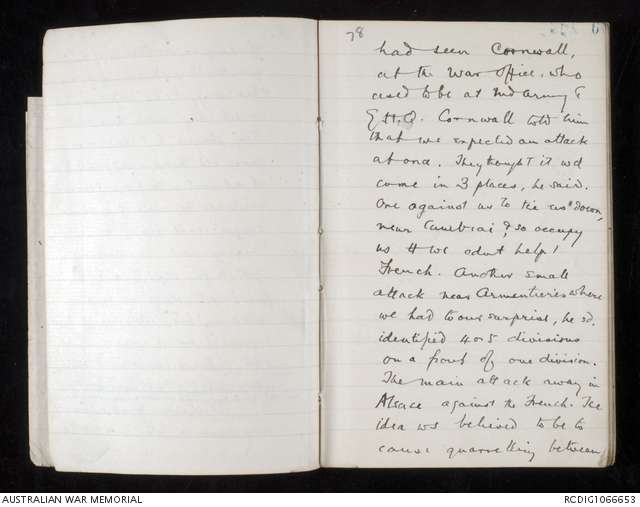 78
had seen Cornwall,
at the War Office, who
used to be at 2nd Army &
G.H.Q. Cornwall told him
that we expected an attack
at once. They thought it wd
come in 3 places, he said.
One against us to tie us down,
near Cambrai, & so occupy
us tt we cdnt help /
French. Another small
attack near Armentieres where
we had to our surprise, he sd,
identified 4 or 5 divisions
on a front of one division.
The main attack away in
Alsace against the French. The
idea ws believed to be to
cause quarrelling between
AUSTRALIAN WAR MEMORIAL
RCDIG1066653